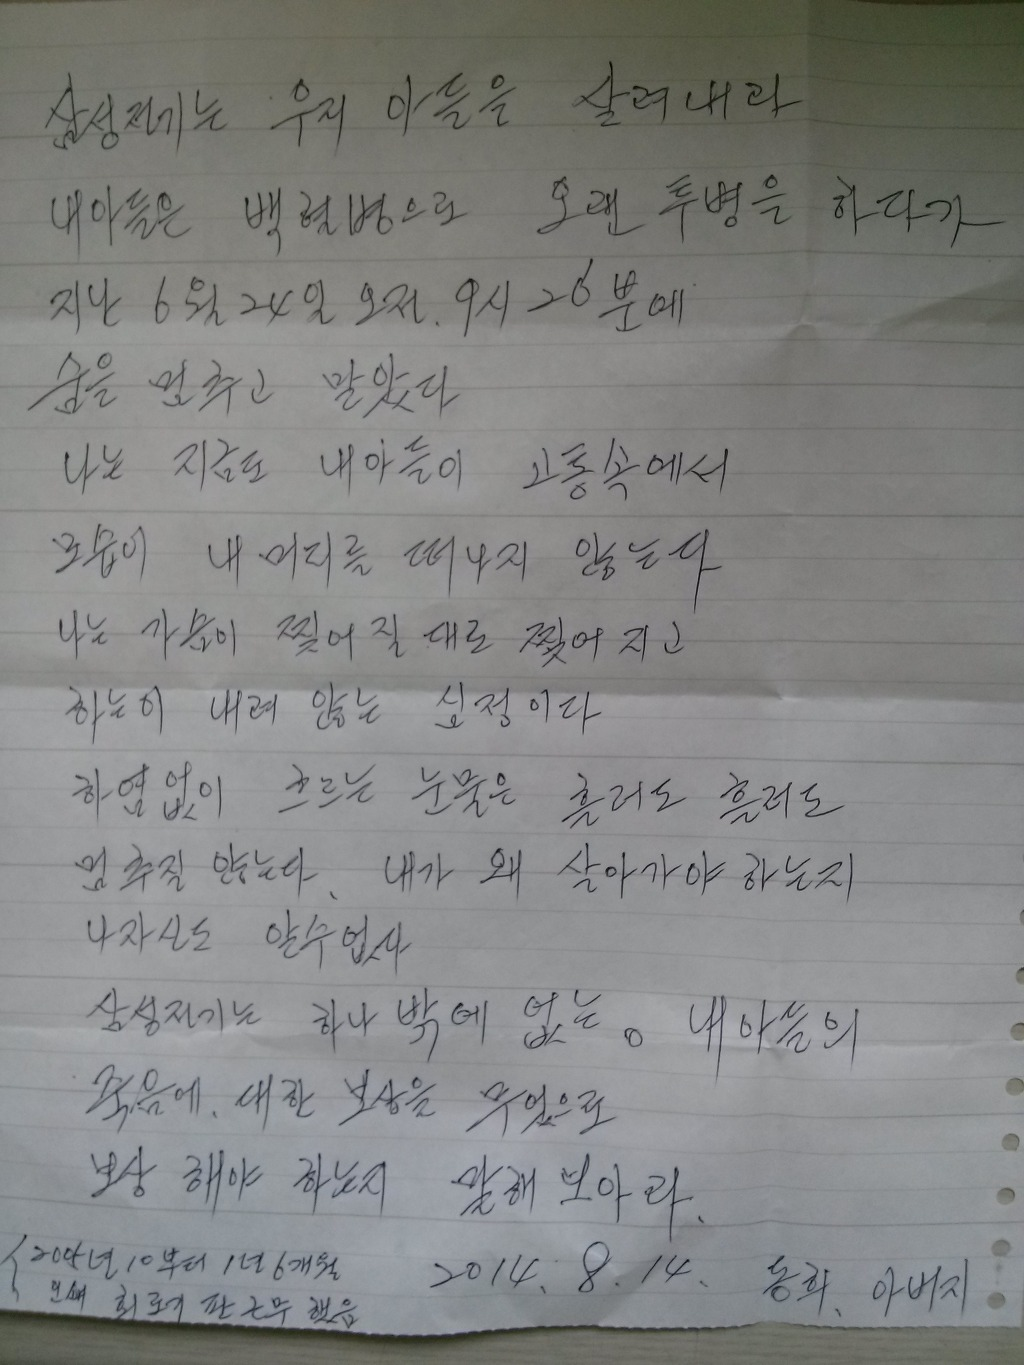 삼성전기는 우리 아들을 살려내라
내아들은 백혈병으로 오랜 투병을 하다가
지난 6월 24일 오전. 9시 26분에
숨을 멈추고 말았다
나는 지금도 내아들이 고통속에서
모습이 내 머리를 떠나지 않는다
나는 가슴이 찢어질 대로 찢어지고
하늘이 내려 않는 심정이다
하염없이 흐르는 눈물은 흘러도 흘러도
멈추질 않는다. 내가 왜 살아가야 하는지
나자신도 알수 없다
삼성전기는 하나 밖에 없는. 내아들의
죽음에. 대한 보상을 무엇으로
보상 해야 하는지 말해 보아라.
2014. 8. 14. 동화. 아버지
10부터 1년 6개월
인쇄 회로기 판 근무 했음